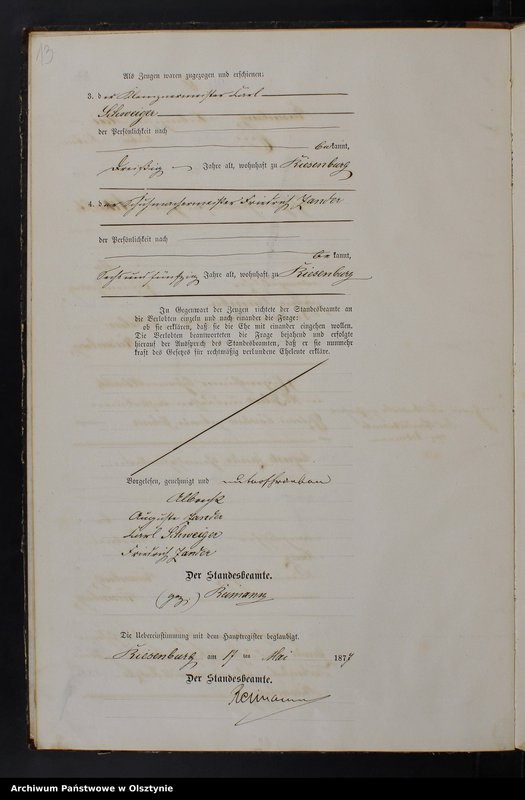 13
Als Zeugen waren zugezogen und erschienen:
3. der Klempnermeister Karl
Schweiger
der Persönlichkeit nach
bekannt,
dreißig Jahre alt, wohnhaft zu Riesenburg
4. der Schuhmachermeister Friedrich Zander
der Persönlichkeit nach
bekannt,
sechsundfünfzig Jahre alt, wohnhaft zu Riesenburg
In Gegenwart der Zeugen richtete der Standesbeamte an
die Verlobten einzeln und nach einander die Frage:
ob sie erklären, daß sie die Ehe mit einander eingehen wollen.
Die Verlobten beantworteten die Frage bejahend und erfolgte
hierauf der Ausspruch des Standesbeamten, daß er sie nunmehr
kraft des Gesetzes für rechtmäßig verbundene Eheleute erkläre.
Vorgelesen, genehmigt und unterschrieben
Auguste Zander
Karl Schweiger
Friedrich Zander
Der Standesbeamte.
(gez.) Reimann
Die Uebereinstimmung mit dem Hauptregister beglaubigt.
Riesenburg am 17 ten Mai 1877
Der Standesbeamte.
Reimann
Archiwum Państwowe w Olsztynie